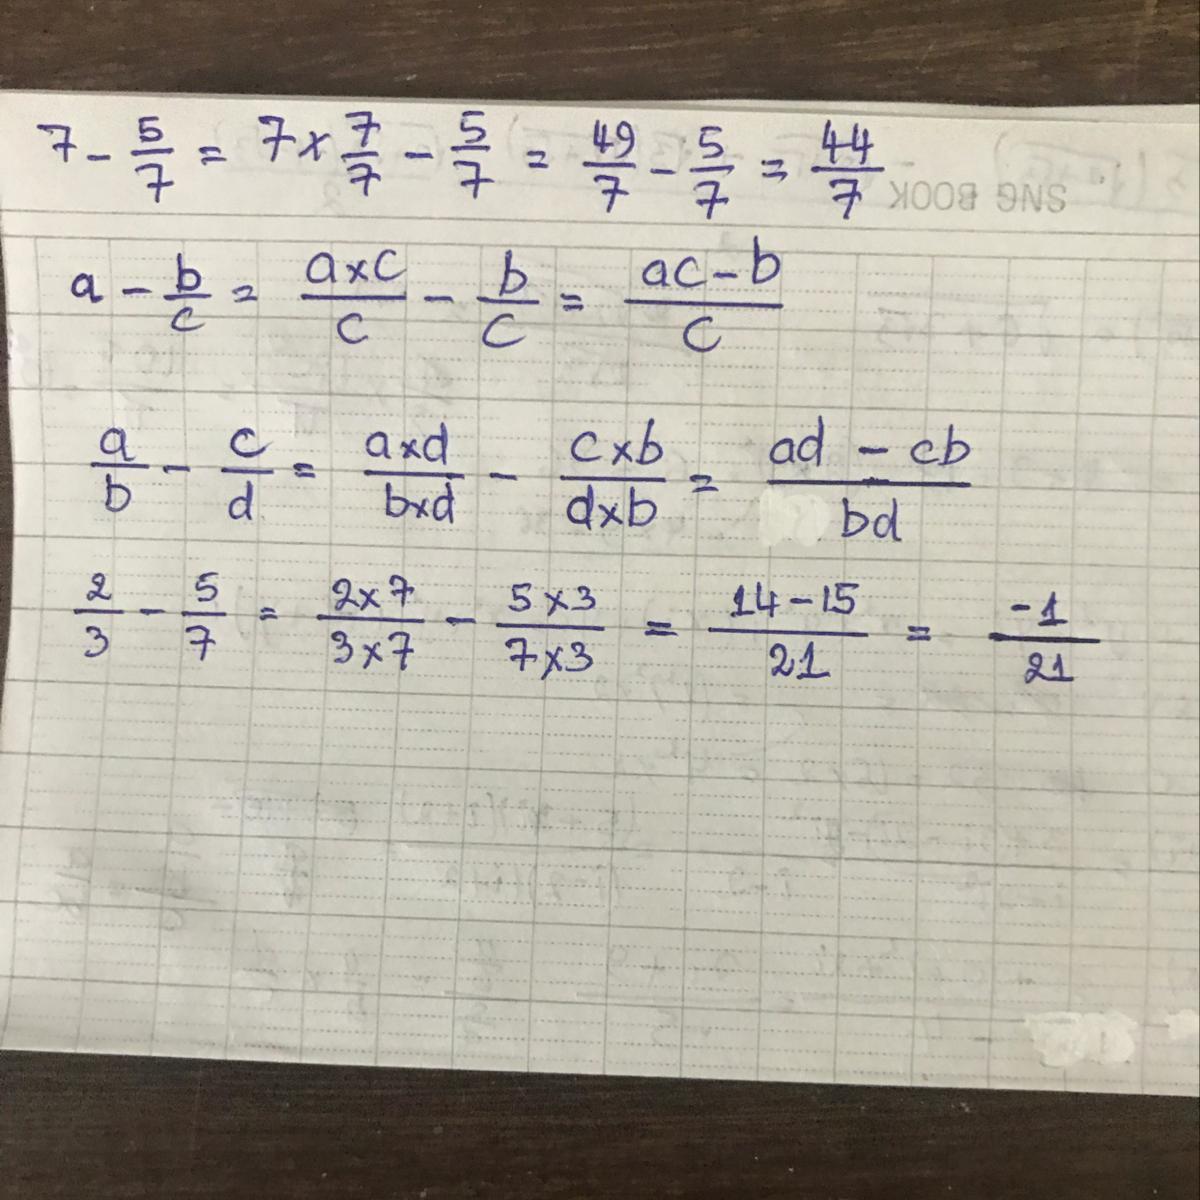 7 - 5/7 = 7 x 7/7 - 5/7 = 49/7 - 5/7 = 44/7
SNG BOOK
a - b/c = axc/c - b/c = ac-b/c
a/b - c/d = axd/bxd - cxb/dxb = ad - cb/bd
2/3 - 5/7 = 2x7/3x7 - 5x3/7x3 = 14-15/21 = -1/21